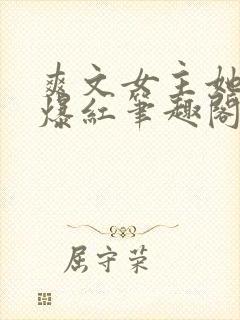 爽文女主她
爆红笔趣阁
屈守荣